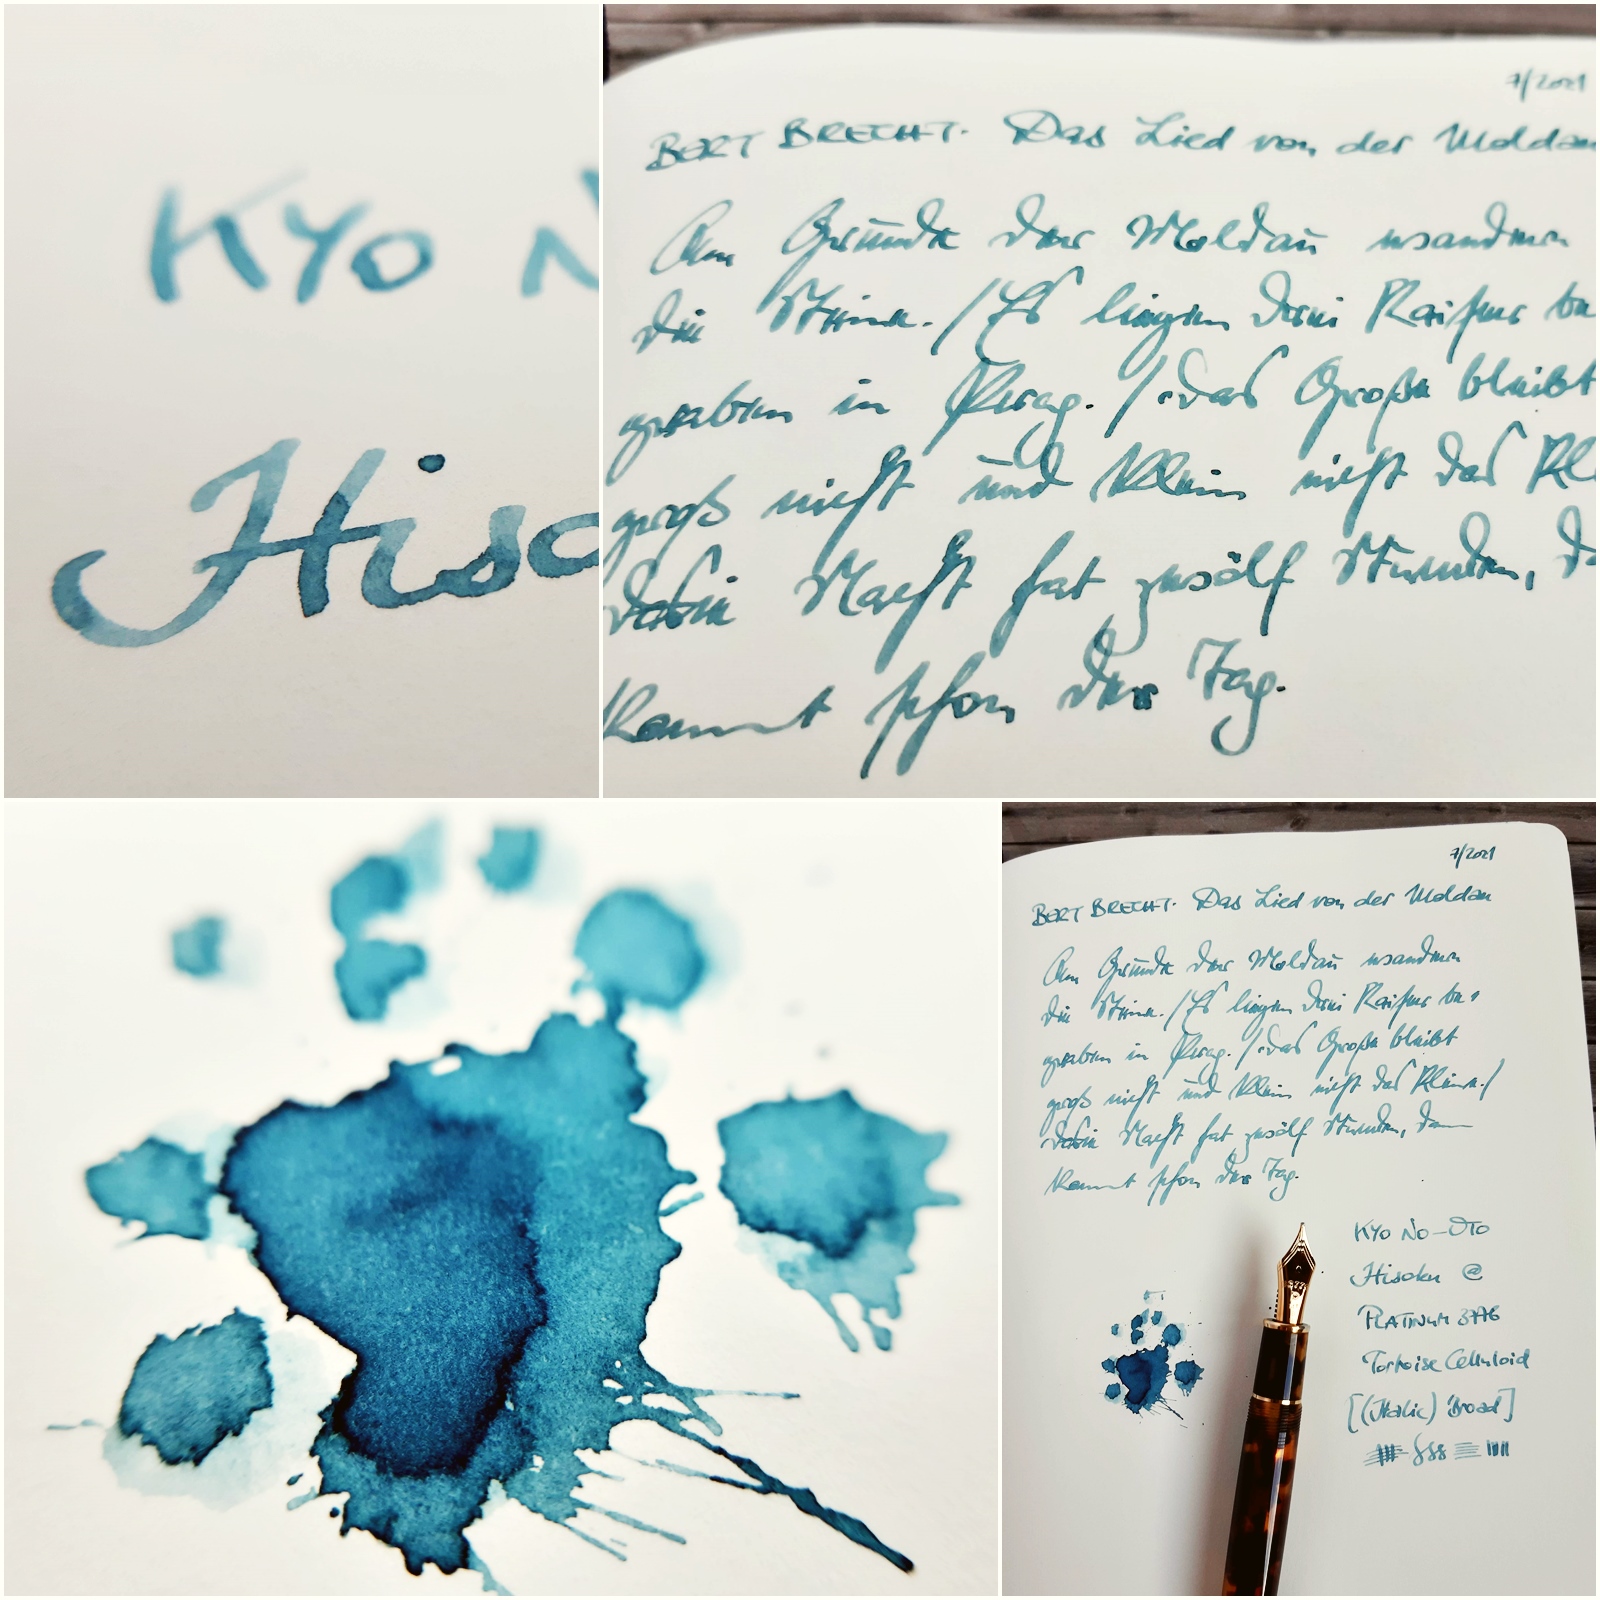 KYO N
Hiso
7/2021
BERT BRECHT. Das Lied von der Moldau
Am Grunde der Moldau wandern
die Steine. / Es liegen drei Kaiser be
graben in Prag. / das Große bleibt
groß nicht und klein nicht das Kl
Nacht hat zwölf Stunden, da
kommt schon der Tag.
7/2021
BERT BRECHT. Das Lied von der Moldau
Am Grunde der Moldau wandern
die Steine. / Es liegen drei Kaiser be-
graben in Prag. / das Große bleibt
groß nicht und klein nicht das Kleine. /
Nacht hat zwölf Stunden, dann
kommt schon der Tag.
KYO NO-OTO
Hisoku @
PLATINUM 3776
Tortoise Celluloid
[(Italic) Broad]